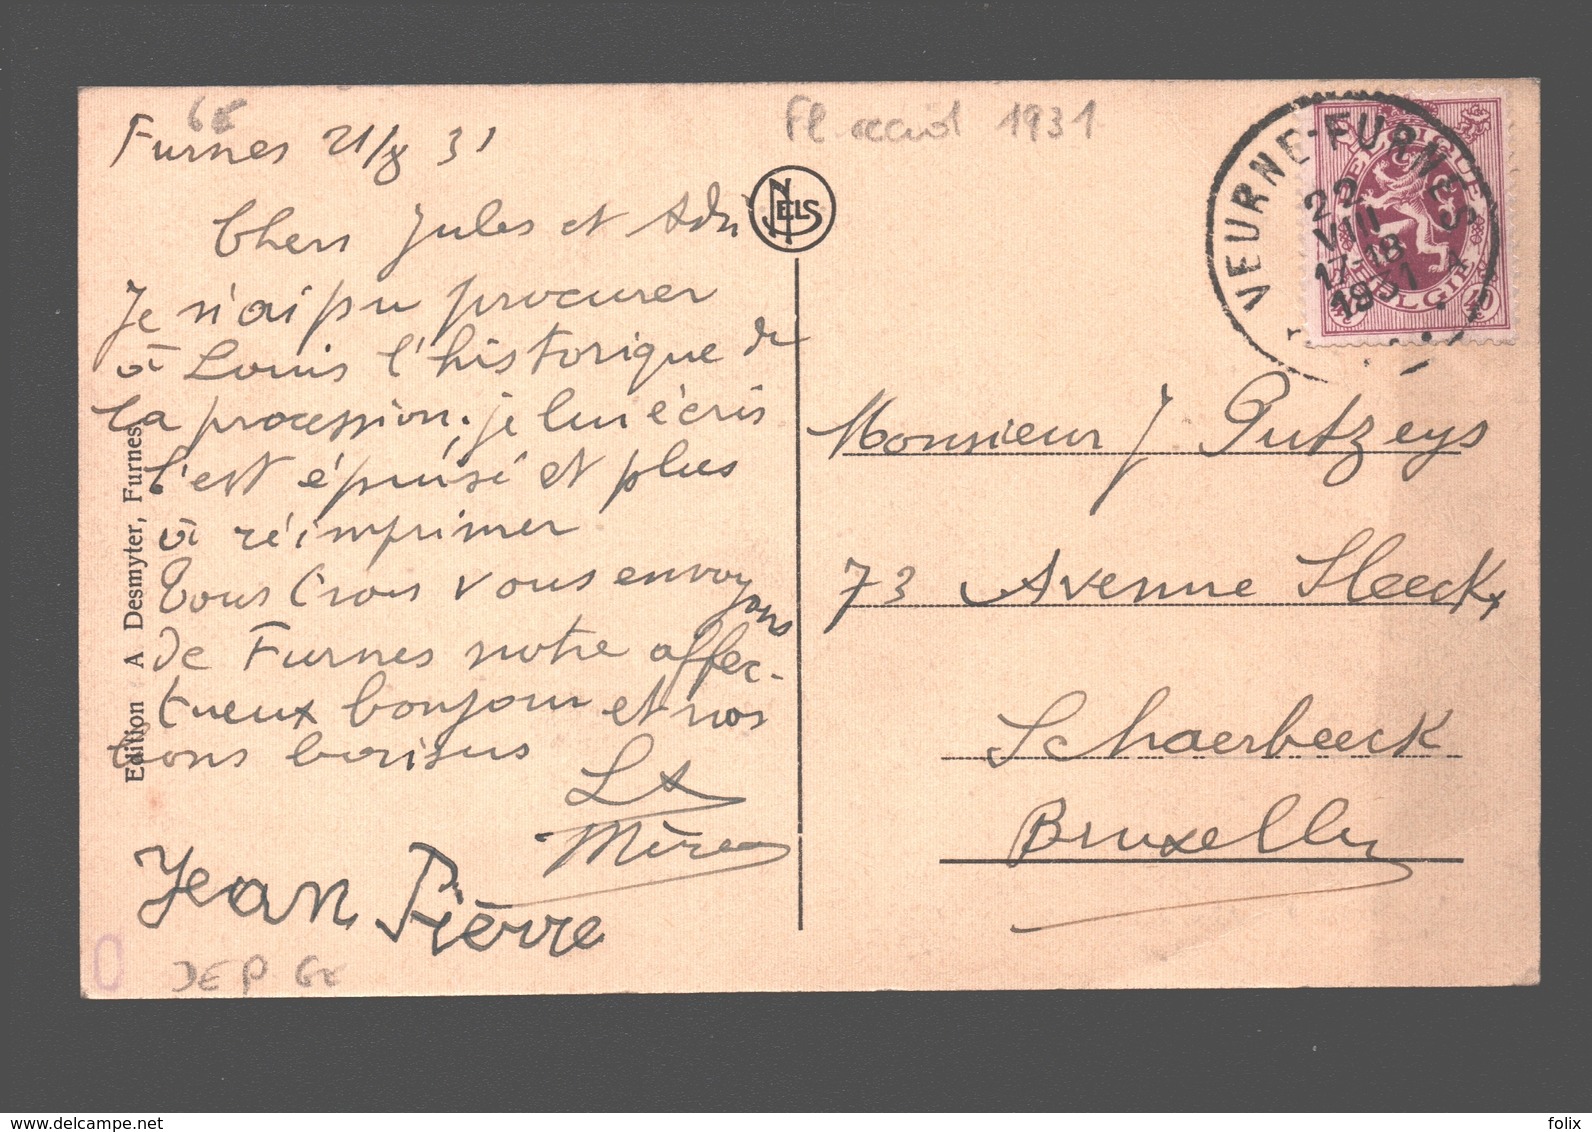 6€
Furnes 21/8 31
Fl. recid 1931
NELS
VEURNE-FURNES
22
VIII
17-18
1931
A
BELGIQUE
BELGIE
40
40
Chers Jules et Adri
Je n'ai pu procurer
à Louis l'historique de
la procession; je lui écris
C'est épuisé et plus
à réimprimer
Tous trois vous envoyons
de Furnes notre affec-
tueux bonjour et nos
bons baisers
Mère
Jean Pierre
Edition A Desmyter, Furnes
Monsieur J Putzeys
73 Avenue Sleeckx
Schaerbeeck
Bruxelles
0
DEP 6€
www.delcampe.net
folix